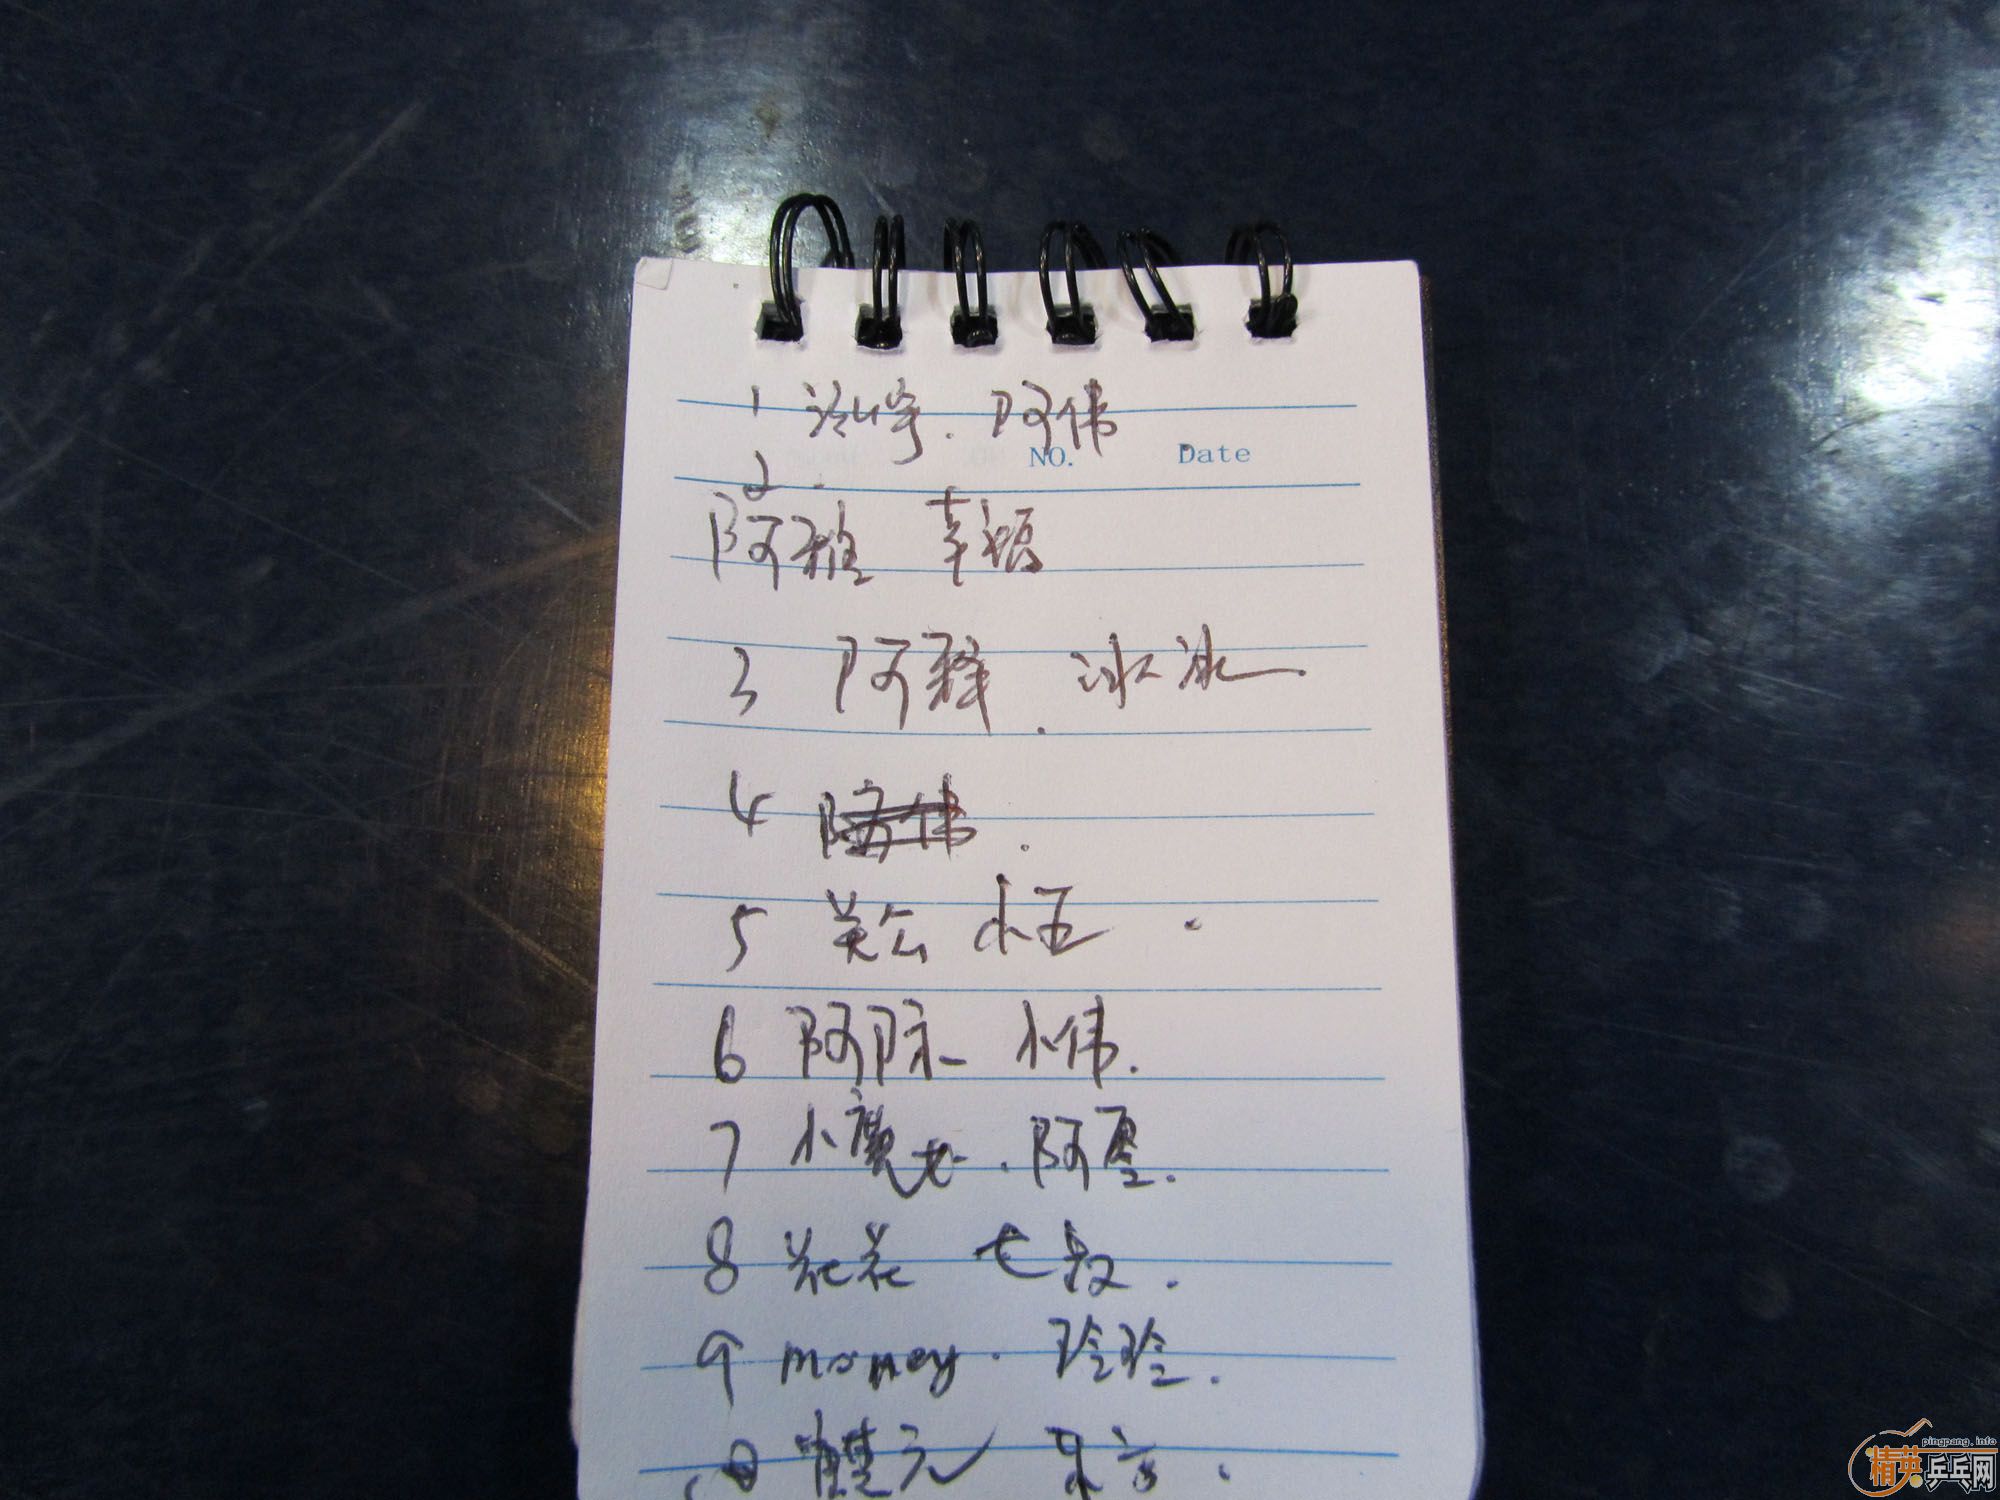 1 阿伟
NO. Date
2.
阿雅 幸福
3 阿释. 冰冰.
4 阿伟.
5 关公 小五.
6 阿陈 小伟.
7 小魔女. 阿厦.
8 花花 七叔.
9 money. 玲玲.
10
pingpang.info
精英乒乓网